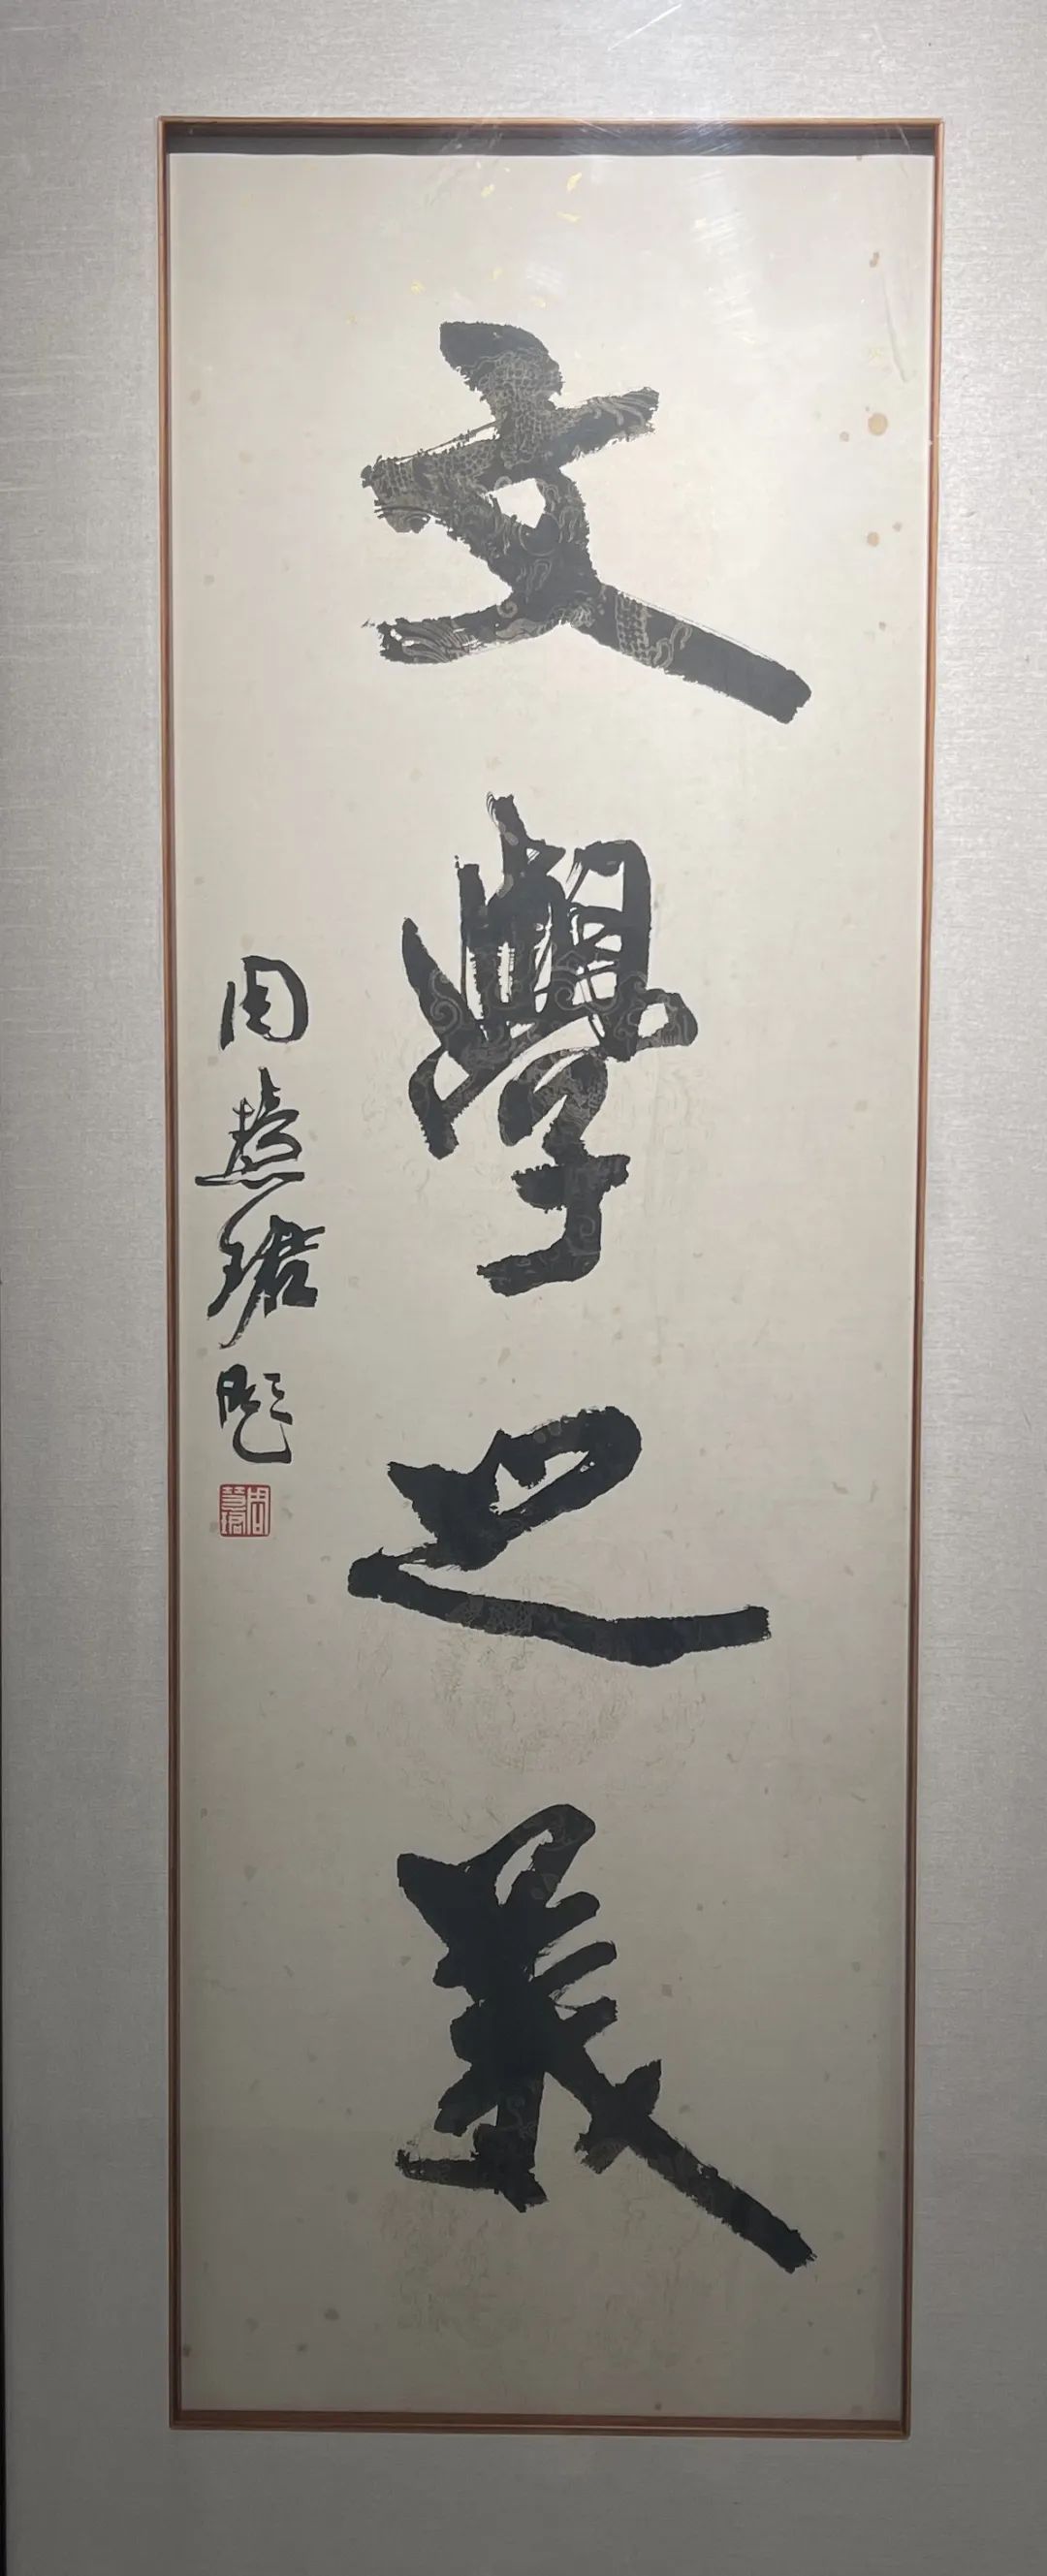 文學之義
周慧珺題
周慧珺